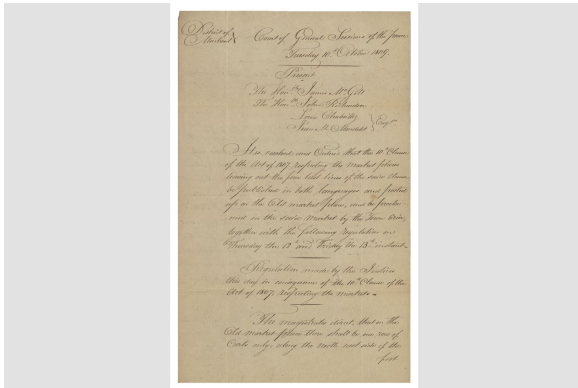 District of
Montreal
Court of General Sessions of the peace
Tuesday 10th October 1809.
Present
The Honble James McGill
The Honble John Richardson
Louis Chaboillez
Esqrs
It is resolved and Ordered that the 10th Clause
of the Act of 1807. respecting the market places
leaving out the four last lines of the said Clause
be published in both languages and posted
up in the Old market place, and be proclai-
med in the said Market by the Town Crier,
together with the following regulation on
Thursday the 12th and Friday the 13th instant.
Regulation made by the Justices
this day in consequence of the 10th Clause of the
Act of 1807. respecting the markets.
The magistrates direct, that on the
Old market place there shall be one row of
Carts only along the north west side of the
foot